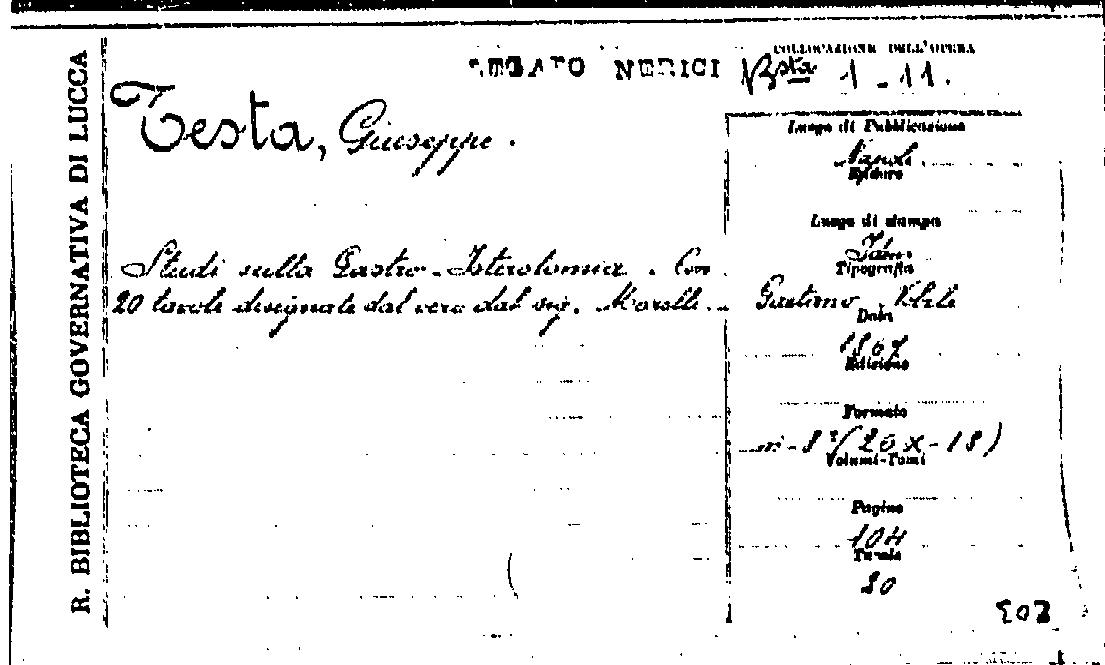 R. BIBLIOTECA GOVERNATIVA DI LUCCA
LEGATO NERICI
COLLOCAZIONE DELL'OPERA
Bsta 1-11.
Testa, Giuseppe.
Studi sulla Gastro-Isterotomia. Con
20 tavole disegnate dal vero dal sig. Morelli.
Luogo di Pubblicazione
Napoli
Editore
Luogo di stampa
Idem
Tipografia
Gaetano Nobile
Data
1867
Edizione
Formato
in-8° (26 x-18)
Volumi-Tomi
Pagine
104
Tavole
20